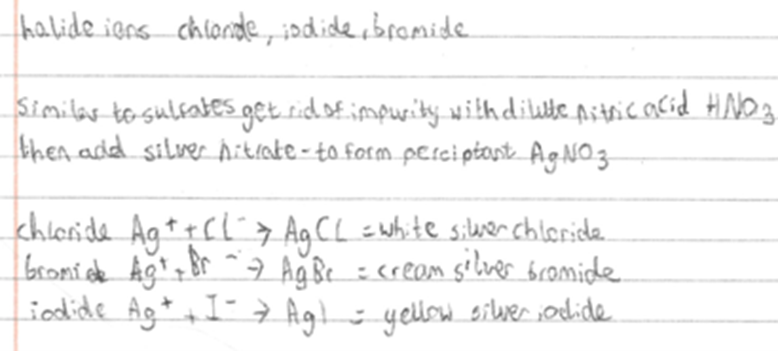 halide ions chloride, iodide, bromide
Similar to sulfates get rid of impurity with dilute nitric acid HNO3
then add silver nitrate - to form perciptant AgNO3
chloride Ag+ + Cl- → AgCl = white silver chloride
bromide Ag+ + Br- → AgBr = cream silver bromide
iodide Ag+ + I- → AgI = yellow silver iodide